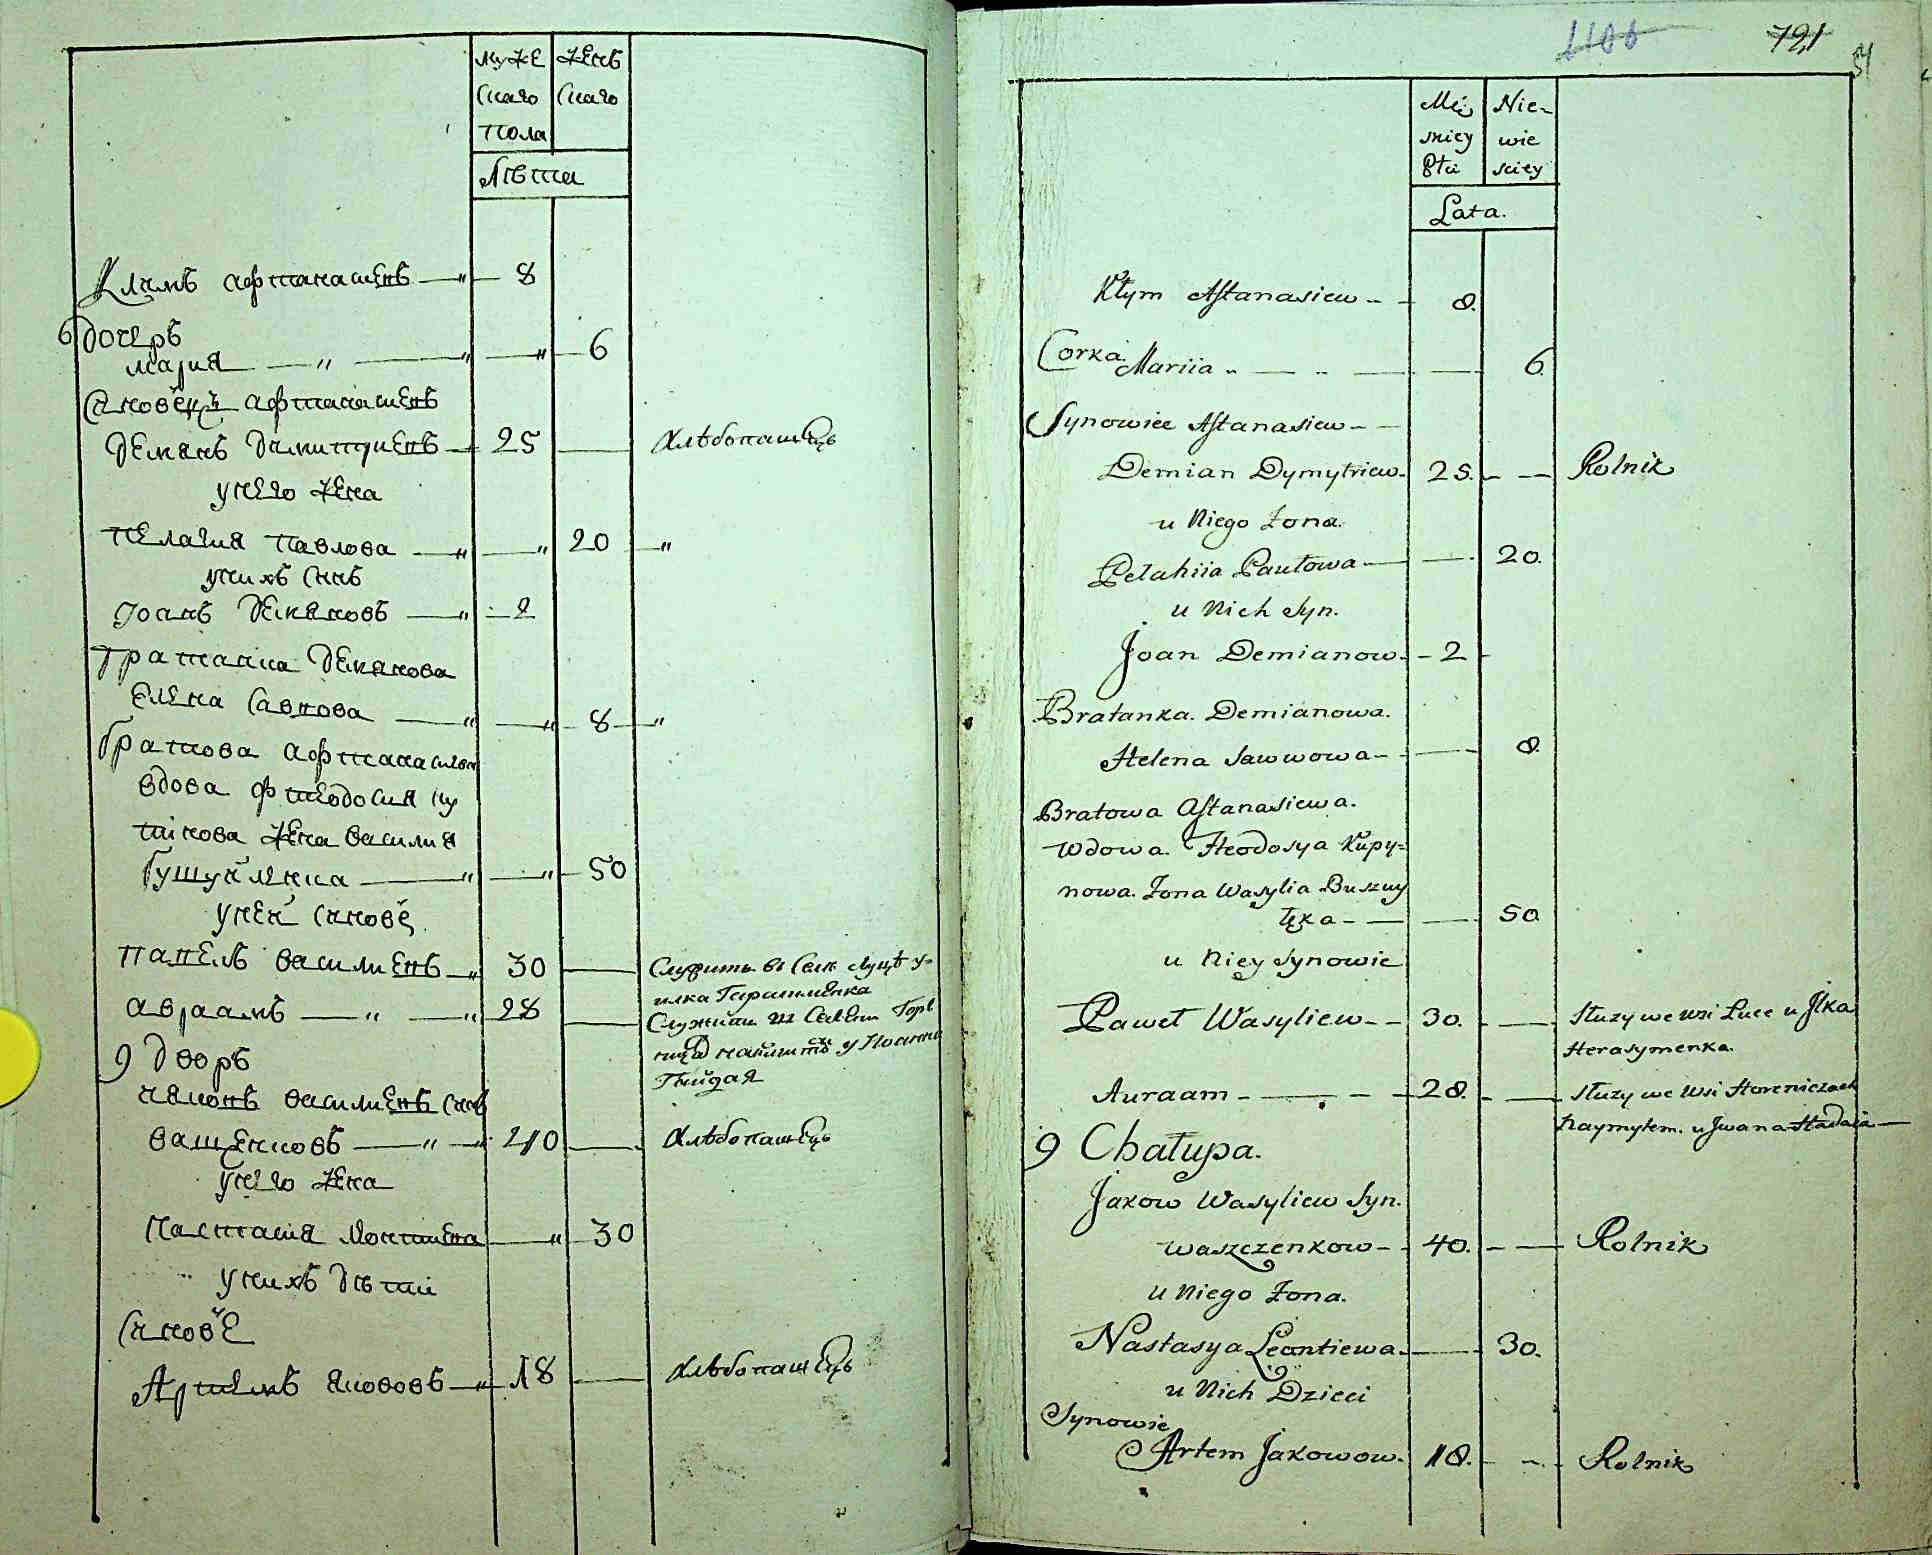 муже женс
скаго скаго
пола
Лѣта
Климъ афтанасиевъ — „ — 8
6 дочеръ
мария — „ — „ — „ 6
Синовецъ афтанасиевъ
Демянъ Димитриевъ — 25 — хлѣбопашецъ
унего жена
пелагия павлова — „ — „ 20 — „
унихъ синъ
Іоанъ Демяновъ — „ — 2
братанка Демянова
Елена Саввова — „ — „ 8 — „
братова афтанасиева
вдова фтеодосия ку
пинова жена василия
бушуйленка — „ — „ 50
уней синовѐ
павелъ василиевъ — „ 30 — Служитъ въ Селѣ Луцѣ у
илка Гарасименка
авраамъ — „ — „ 28 — Служитъ
9 дворъ
яковъ василиевъ синъ
ващенковъ — „ — 40 — хлѣбопашецъ
унего жена
настасия леонтиева — „ 30
унихъ дѣти
Синовѐ
Артемъ якововъ — „ 18 — хлѣбопашецъ
1106 721 51
Mę Nie-
skiey wie
Płci sciey
Lata.
Kłym Aftanasiew - - 8.
Corka Mariia „ — „ — — 6.
Synowiec Aftanasiew - -
Demian Dymytriew - 25. - — Rolnik
u Niego Zona.
Pelahiia Pawłowa — — 20.
u Nich Syn.
Joan Demianow. - 2 -
Bratanka. Demianowa.
Helena Sawwowa - - — 8.
Bratowa Aftanasiewa.
Wdowa. Fteodosya Kupy=
nowa. Zona Wasylia Buszuy
lęka - — — 50
u Niey Synowie
Paweł Wasyliew - - 30. - — Słuzy we wsi Łuce u Ilka
Herasymenka.
Auraam - — - - 28. - — Słuzy we wsi Horeniczach
Naymytem. u Jwana Hadaia —
9 Chałupa.
Jakow Wasyliew Syn.
Waszczenkow - - 40. - — Rolnik
u Niego Zona.
Nastasya Leontiewa. — 30.
u Nich Dzieci
Synowie
Artem Jakowow. 18. - - Rolnik